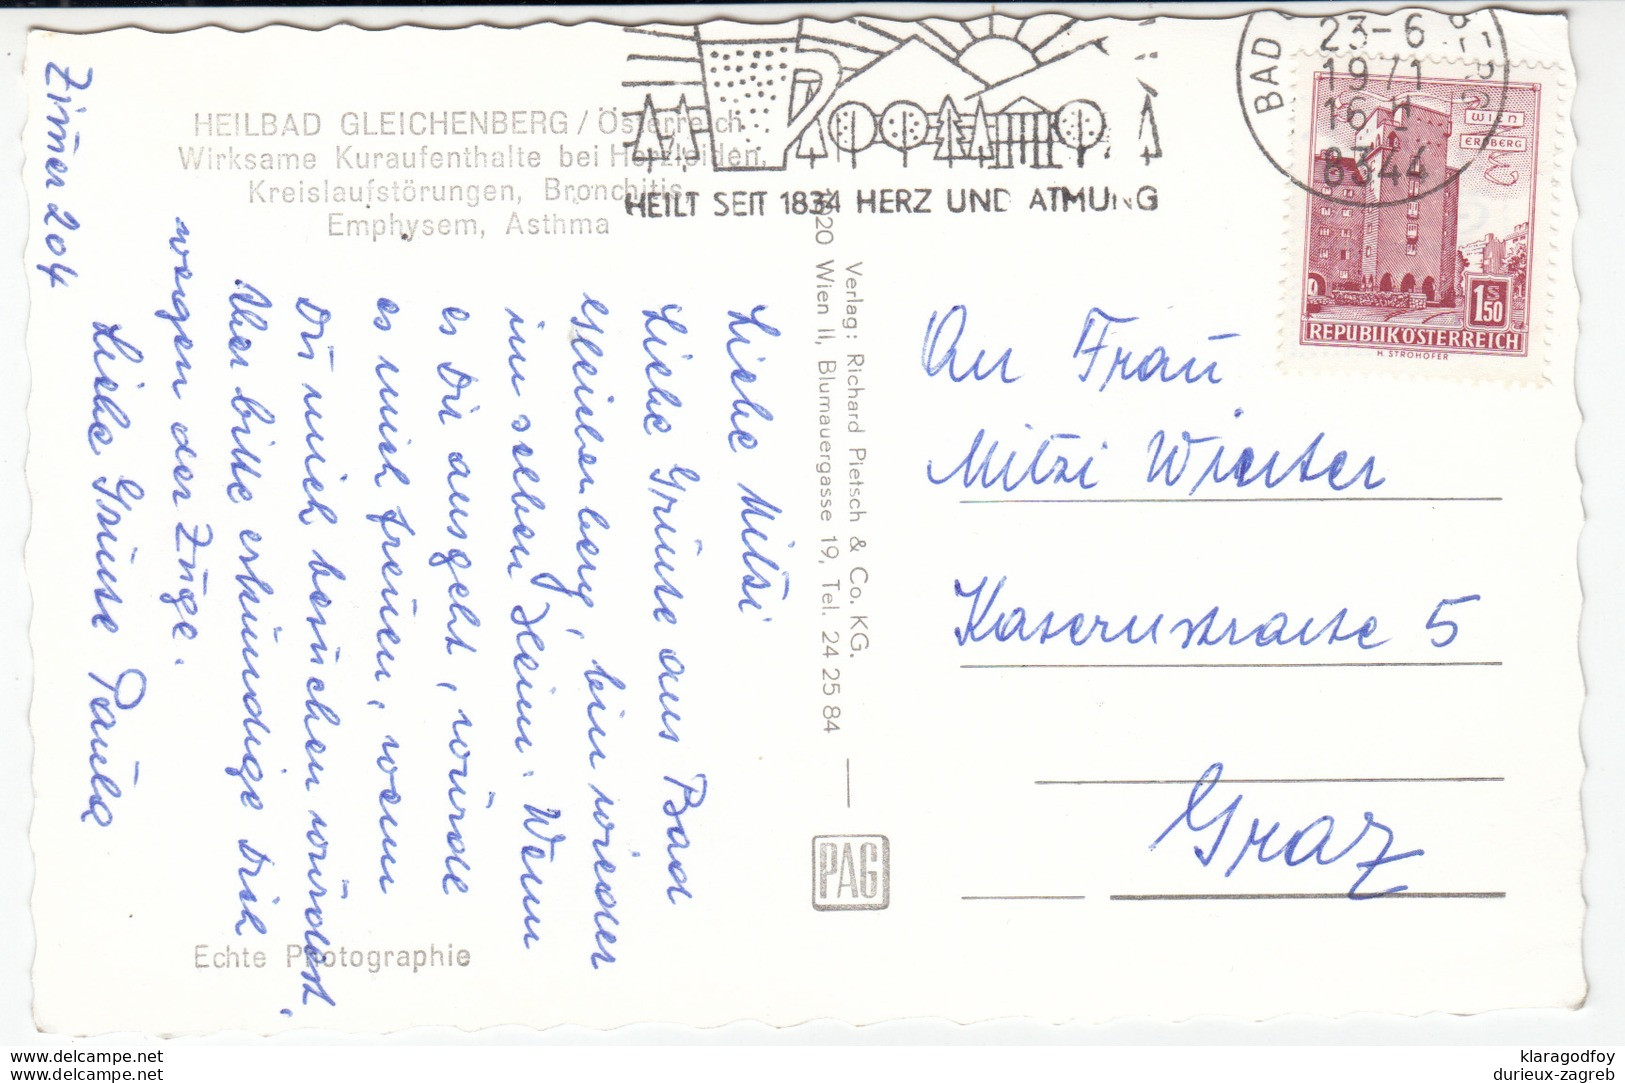 HEILBAD GLEICHENBERG / Österreich
Wirksame Kuraufenthalte bei Herzleiden,
Kreislaufstörungen, Bronchitis,
Emphysem, Asthma
HEILT SEIT 1834 HERZ UND ATMUNG
BAD
23-6
1971
16
8344
WIEN
ERDBERG
1 S 50
REPUBLIK ÖSTERREICH
H. STROHOFER
Zimmer 204
Liebe Mitzi
Liebe Grüsse aus Bad
Gleichenberg, bin wieder
im selben Heim. Wenn
es Dir ausgeht, würde
es mich freuen, wenn
Du mich besuchen würdest,
Aber bitte erkundige Dich
wegen der Züge.
Liebe Grüsse Paula
Verlag: Richard Pietsch & Co. KG,
1020 Wien II, Blumauergasse 19, Tel. 24 25 84
PAG
Echte Photographie
An Frau
Mitzi
Kasernstrasse 5
Graz
delcampe.net
delcampe.net
klaragodfoy
durieux-zagreb